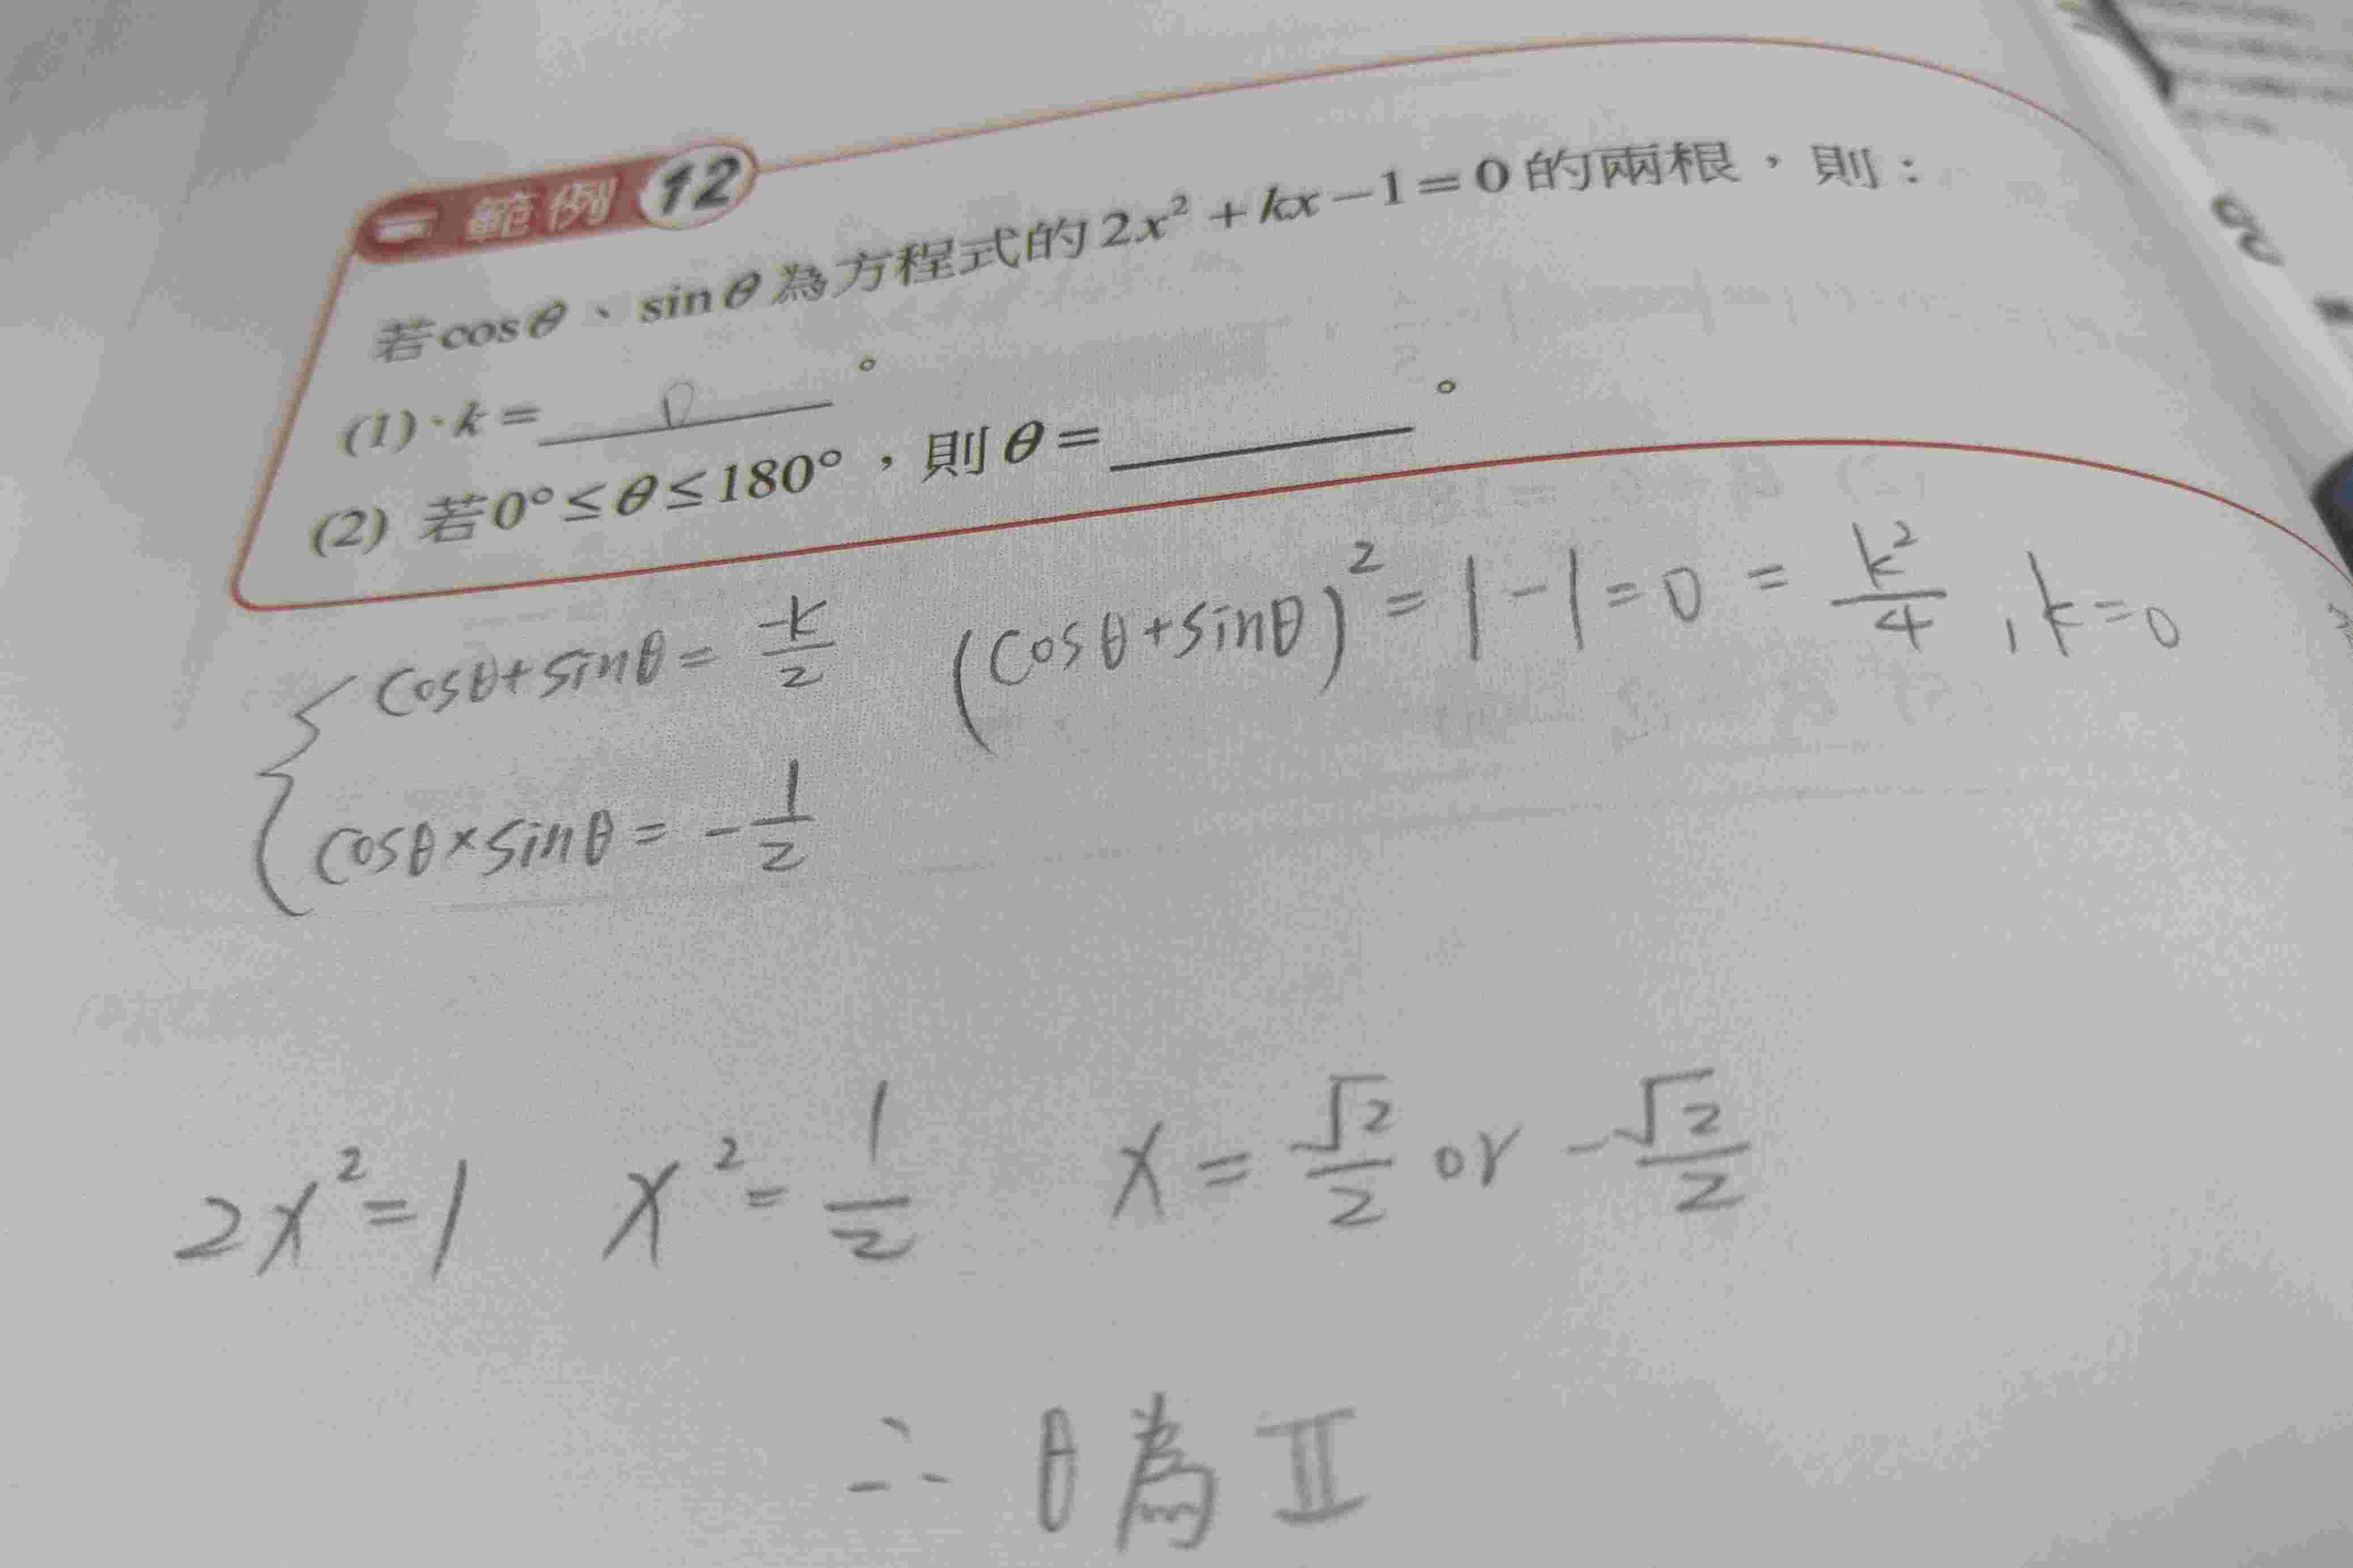 範例 12
若cosθ、sinθ為方程式的2x²+kx−1=0的兩根，則：
(1)·k= 0 。
(2) 若0°≤θ≤180°，則θ=______。
cosθ+sinθ= -k/2 (cosθ+sinθ)²=1-1=0=k²/4, k=0
cosθ×sinθ= -1/2
2x²=1 x²=1/2 x=√2/2 or -√2/2
∴ θ為 II